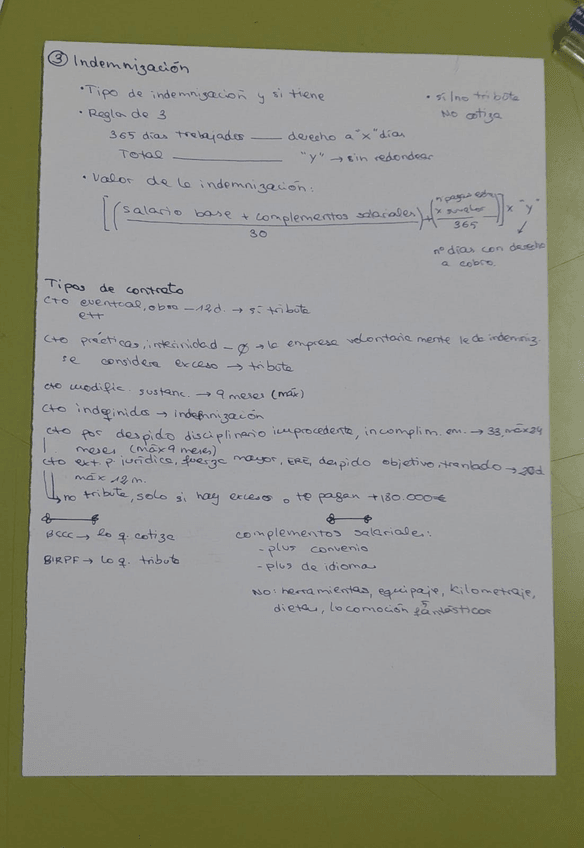 ③ Indemnización
• Tipo de indemnización y si tiene
• si/no tributa
No cotiza
• Regla de 3
365 días trabajados —— derecho a "x" días
Total —— "y" → sin redondear
• Valor de la indemnización:
[(salario base + complementos salariales / 30) + (nº pagas extras x / 365)] x "y"
nº días con derecho a cobro
Tipos de contrato
cto eventual, obra – 12d. → si tributa
ett
cto prácticas, interinidad – ∅ → la empresa voluntariamente le da indemniz.
se considera exceso → tributa
cto modific. sustanc. → 9 meses (máx)
cto indefinidos → Indemnización
cto por despido disciplinario improcedente, incomplim. em. → 33, máx 24
meses. (máx 9 meses)
cto ext. p. jurídica, fuerza mayor, ERE, despido objetivo, tranlado → 20d.
máx 12 m.
→ no tributa, solo si hay exceso, o te pagan +180.000€
BCCC → lo q. cotiza
BIRPF → lo q. tributa
complementos salariales:
- plus convenio
- plus de idiomas
NO: herramientas, equipaje, kilometraje,
dietas, locomoción